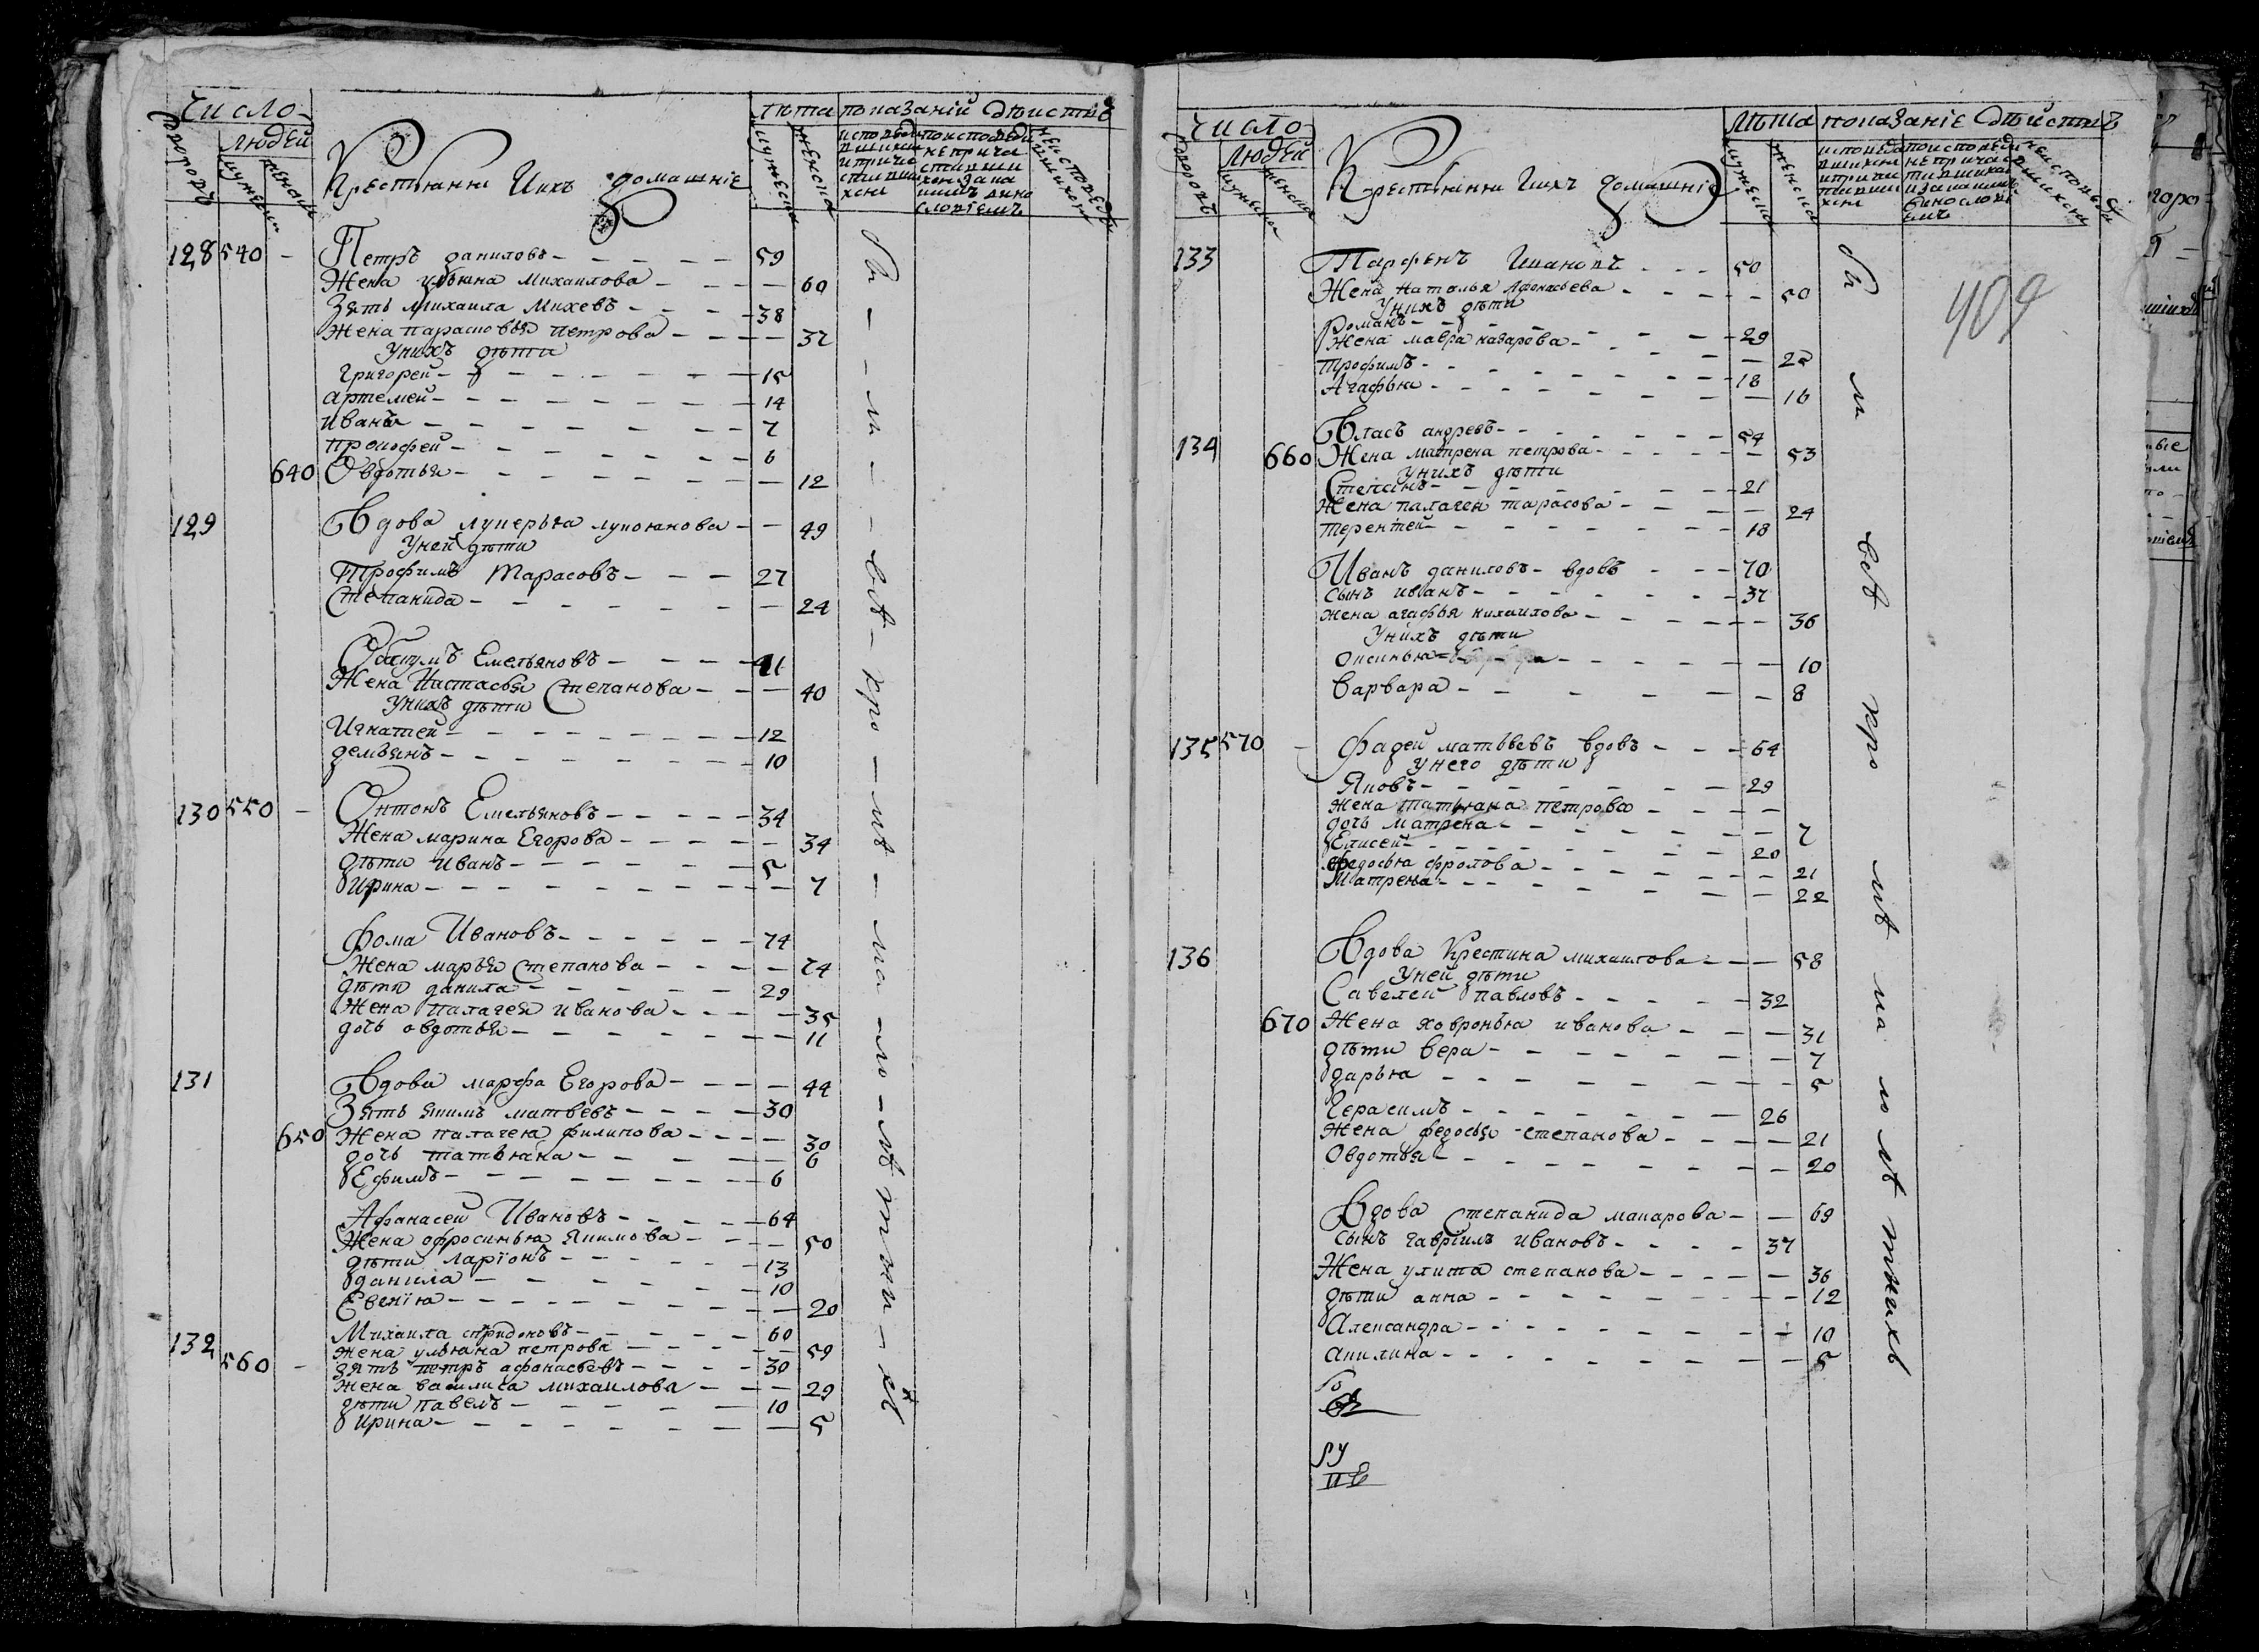 Число
Людей
Крестьяне Ихъ домашніе
Лѣта показаній дѣиствъ
128 540 - Петръ даниловъ - 59
Жена ульяна Михаилова - 60
Зять Михаила Михевъ - 38
Жена парасковья петрова - 37
Унихъ дѣти
Григореи - 15
артемеи - 14
иванъ - 7
прокофеи - 6
640 Овдотья - 12
129 Вдова лукерья лукоянова - 49
Унеи дѣти
Трофимъ Тарасовъ - 27
Степанида - 24
Емельяновъ - 41
Жена Настасья Степанова - 40
Унихъ дѣти
Игнатеи - 12
демьянъ - 10
130 550 - Онтонъ Емельяновъ - 34
Жена марина Егорова - 34
дѣти иванъ - 5
ирина - 7
фома Ивановъ - 74
Жена марья Степанова - 74
дѣти данила - 29
Жена палагея иванова - 35
дочь овдотья - 11
131 Вдова марфа Егорова - 44
Зять якимъ матвевъ - 30
650 Жена палагея филипова - 30
дочь татьяна - 6
Ефимъ - 6
Афанасеи Ивановъ - 64
Жена офросинья Якимова - 50
дѣти Ларіонъ - 13
данила - 10
Евгенія - 20
132 Михаила спридоновъ - 60
жена ульяна петрова - 59
560 - зять петръ афонасьевъ - 30
жена василиса михаилова - 29
дѣти павелъ - 10
ирина - 5
Число
Людей
Крестьяне Ихъ домашніе
Лѣта показаніе дѣиствъ
409
133 Парфенъ Ивановъ - 50
Жена наталья Афонасьева - 50
Унихъ дѣти
Романъ - 29
Жена мавра назарова - 25
трофимъ - 18
Агафья - 16
134 Власъ андревъ - 54
660 Жена матрена петрова - 53
унихъ дѣти
Степанъ - 21
жена палагея тарасова - 24
терентеи - 18
Иванъ даниловъ вдовъ - 70
сынъ иванъ - 37
жена агафья михаилова - 36
Унихъ дѣти
оксинья - 10
варвара - 8
135 570 - фадеи матвѣевъ вдовъ - 64
унего дѣти
Яковъ - 29
жена татьяна петрова
дочь матрена - 7
Елисеи - 20
федосья фролова - 21
Матрена - 22
136 Вдова Крестина михаилова - 58
Унеи дѣти
Савелеи павловъ - 32
670 Жена ховронья иванова - 31
дѣти вера - 7
дарья - 5
Герасимъ - 26
жена федосья степанова - 21
Овдотья - 20
Вдова Степанида макарова - 69
сынъ гавріилъ ивановъ - 37
Жена улита степанова - 36
дѣти анна - 12
Александра - 10
акилина - 5